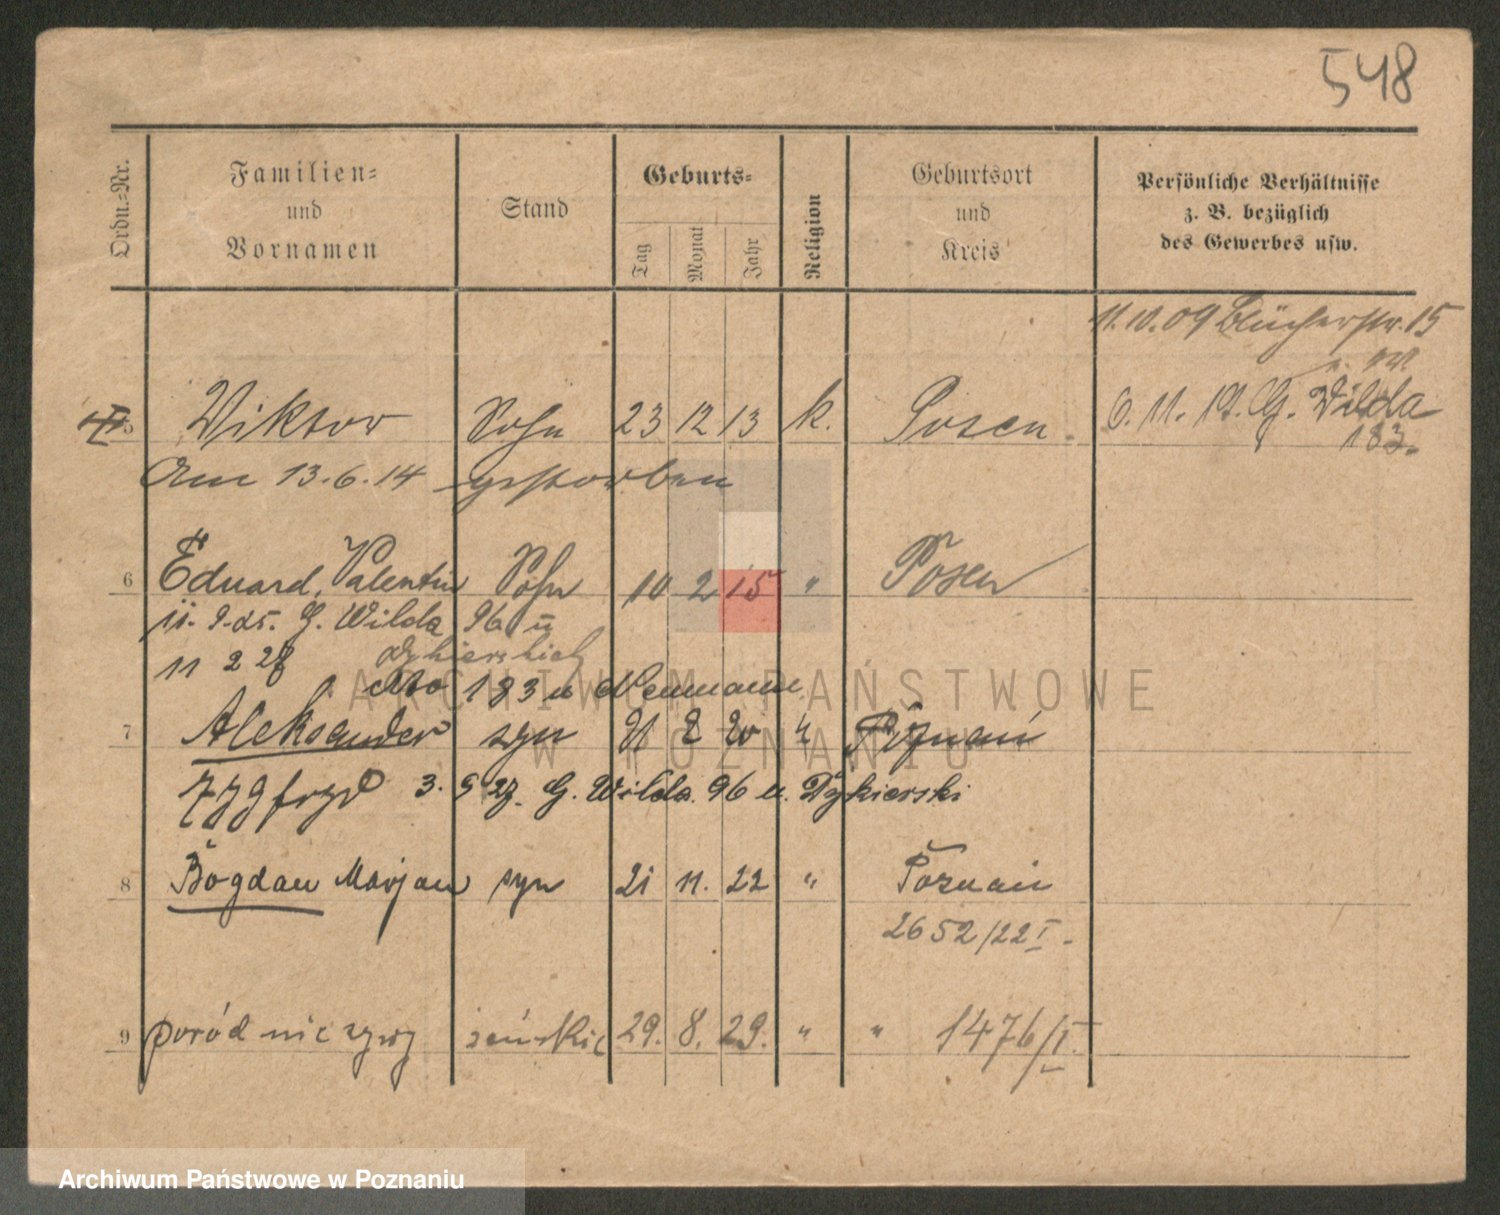 548
Ordn.-Nr.
Familien-
und
Vornamen
Stand
Geburts-
Tag
Monat
Jahr
Religion
Geburtsort
und
Kreis
Persönliche Verhältnisse
z. B. bezüglich
des Gewerbes usw.
11.10.09 Blücherstr. 15
5 Wiktor Sohn 23 12 13 k. Posen. 6. 11. 19. G. Wilda
183.
Am 13.6.14 gestorben
6 Eduard, Valentin Sohn 10 2 15 " Posen
11. 9. 25. G. Wilda 96 u
11 2 28 Dykierskich
183 u Neumann
7 Aleksander syn 2 20 " Poznań
3. 5 27. G. Wilda. 96 u. Dykierski
8 Bogdan Marjan syn 21 11. 22 " Poznań
2652/22 I.
9 poród nieżywy żeńskie 29. 8. 29. " " 1476/I.
ARCHIWUM PAŃSTWOWE
W POZNANIU
Archiwum Państwowe w Poznaniu